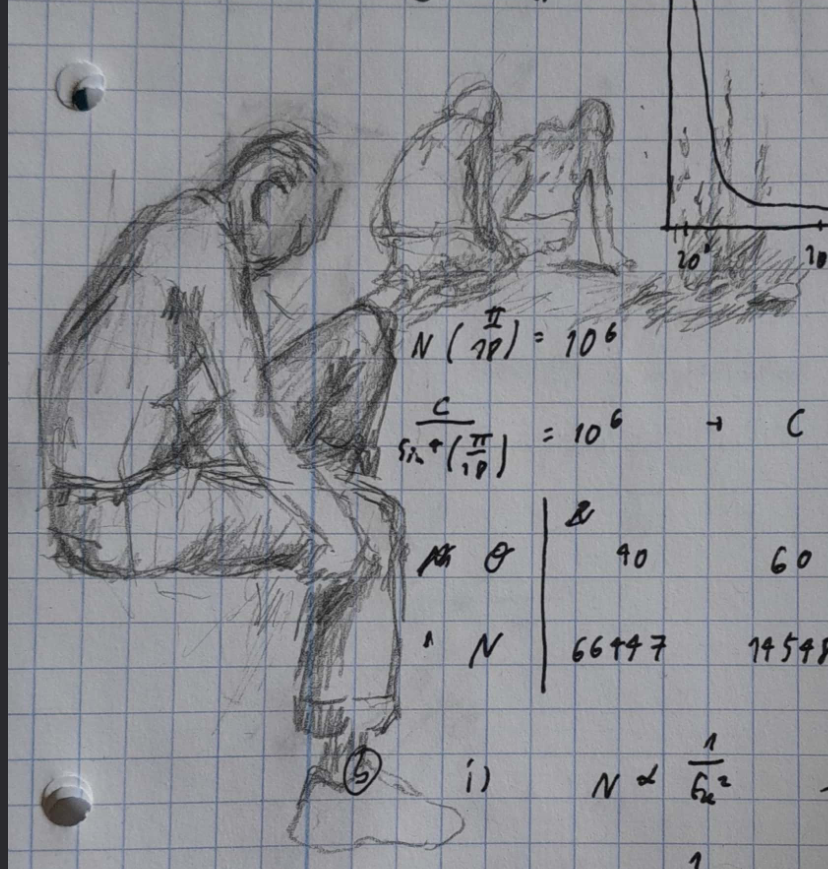 20° 20
N ( π/18 ) = 10⁶
C / sin⁴ ( π/18 ) = 10⁶ → C
θ | 40 60
N | 66447 14548
⑤ i) N ∝ 1 / E_k²
1